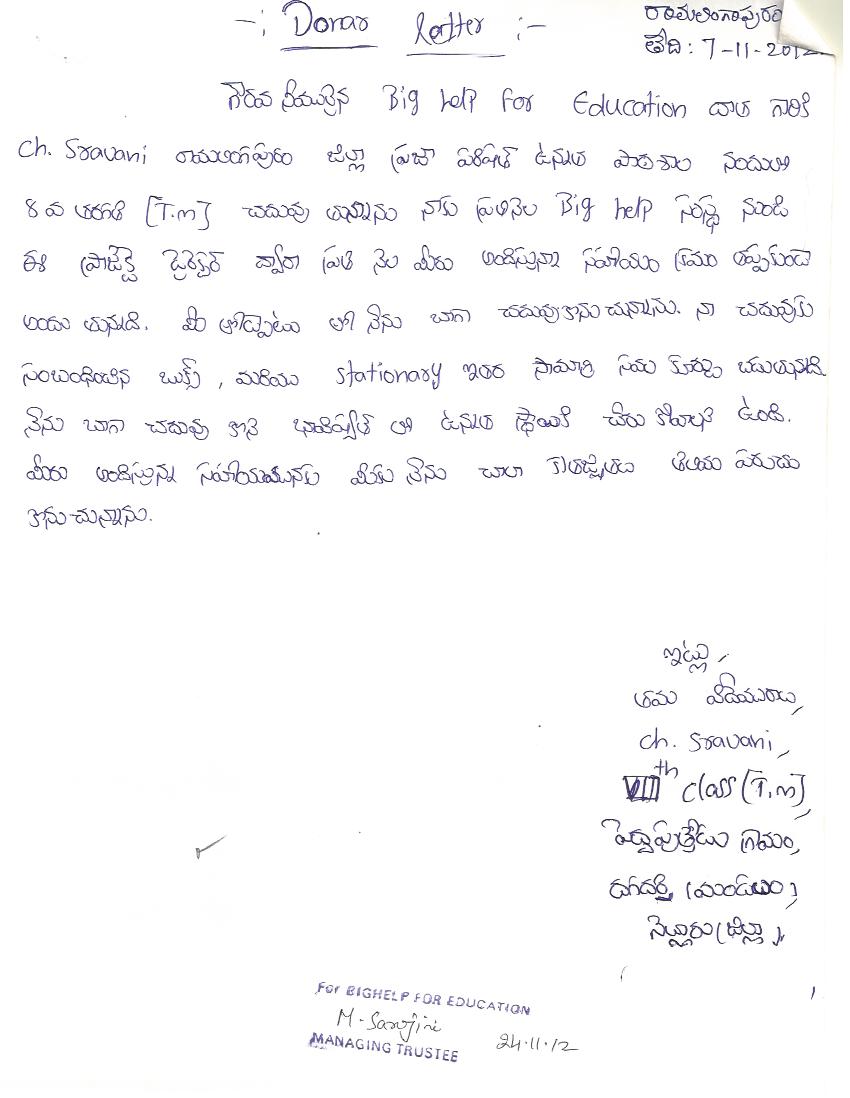 -: Donar Letter :-
రామలింగాపురం
తేది : 7-11-2012
గౌరవ నీయులైన Big help For Education దాత గారికి
Ch. Sravani రామలింగపురం జిల్లా ప్రజా పరిషత్ ఉన్నత పాఠశాల నందు
8 వ తరగతి [T.m] చదువు తున్నాను నాకు ప్రతినెల Big help సంస్థ నుండి
ఈ ప్రాజెక్ట్ డైరెక్టర్ ద్వారా ప్రతి నెల మీరు అందిస్తున్న సహాయం క్రమం తప్పకుండా
అందు తునది. మీ తోడ్పాటు తో నేను బాగా చదువుకొను చున్నాను. నా చదువుకు
సంబంధించిన బుక్స్, మరియు stationary ఇతర సామాగ్రి సమ కూర్చ బడుతునది.
నేను బాగా చదువు కొని భవిష్యత్ తో ఉన్నత స్థాయికి చేరు కోవాలని ఉంది.
మీరు అందిస్తున్న సహాయమునకు మీకు నేను చాలా కృతజ్ఞతలు తెలియ పరుచు
కొను చున్నాను.
ఇట్లు,
తమ విధేయురాలు,
Ch. Sravani,
VIII th class [T.m],
పెద్దపుత్తేడు గ్రామం,
దగదర్తి (మండలం),
నెల్లూరు (జిల్లా),
For BIGHELP FOR EDUCATION
M. Sarojini
24.11.12
MANAGING TRUSTEE